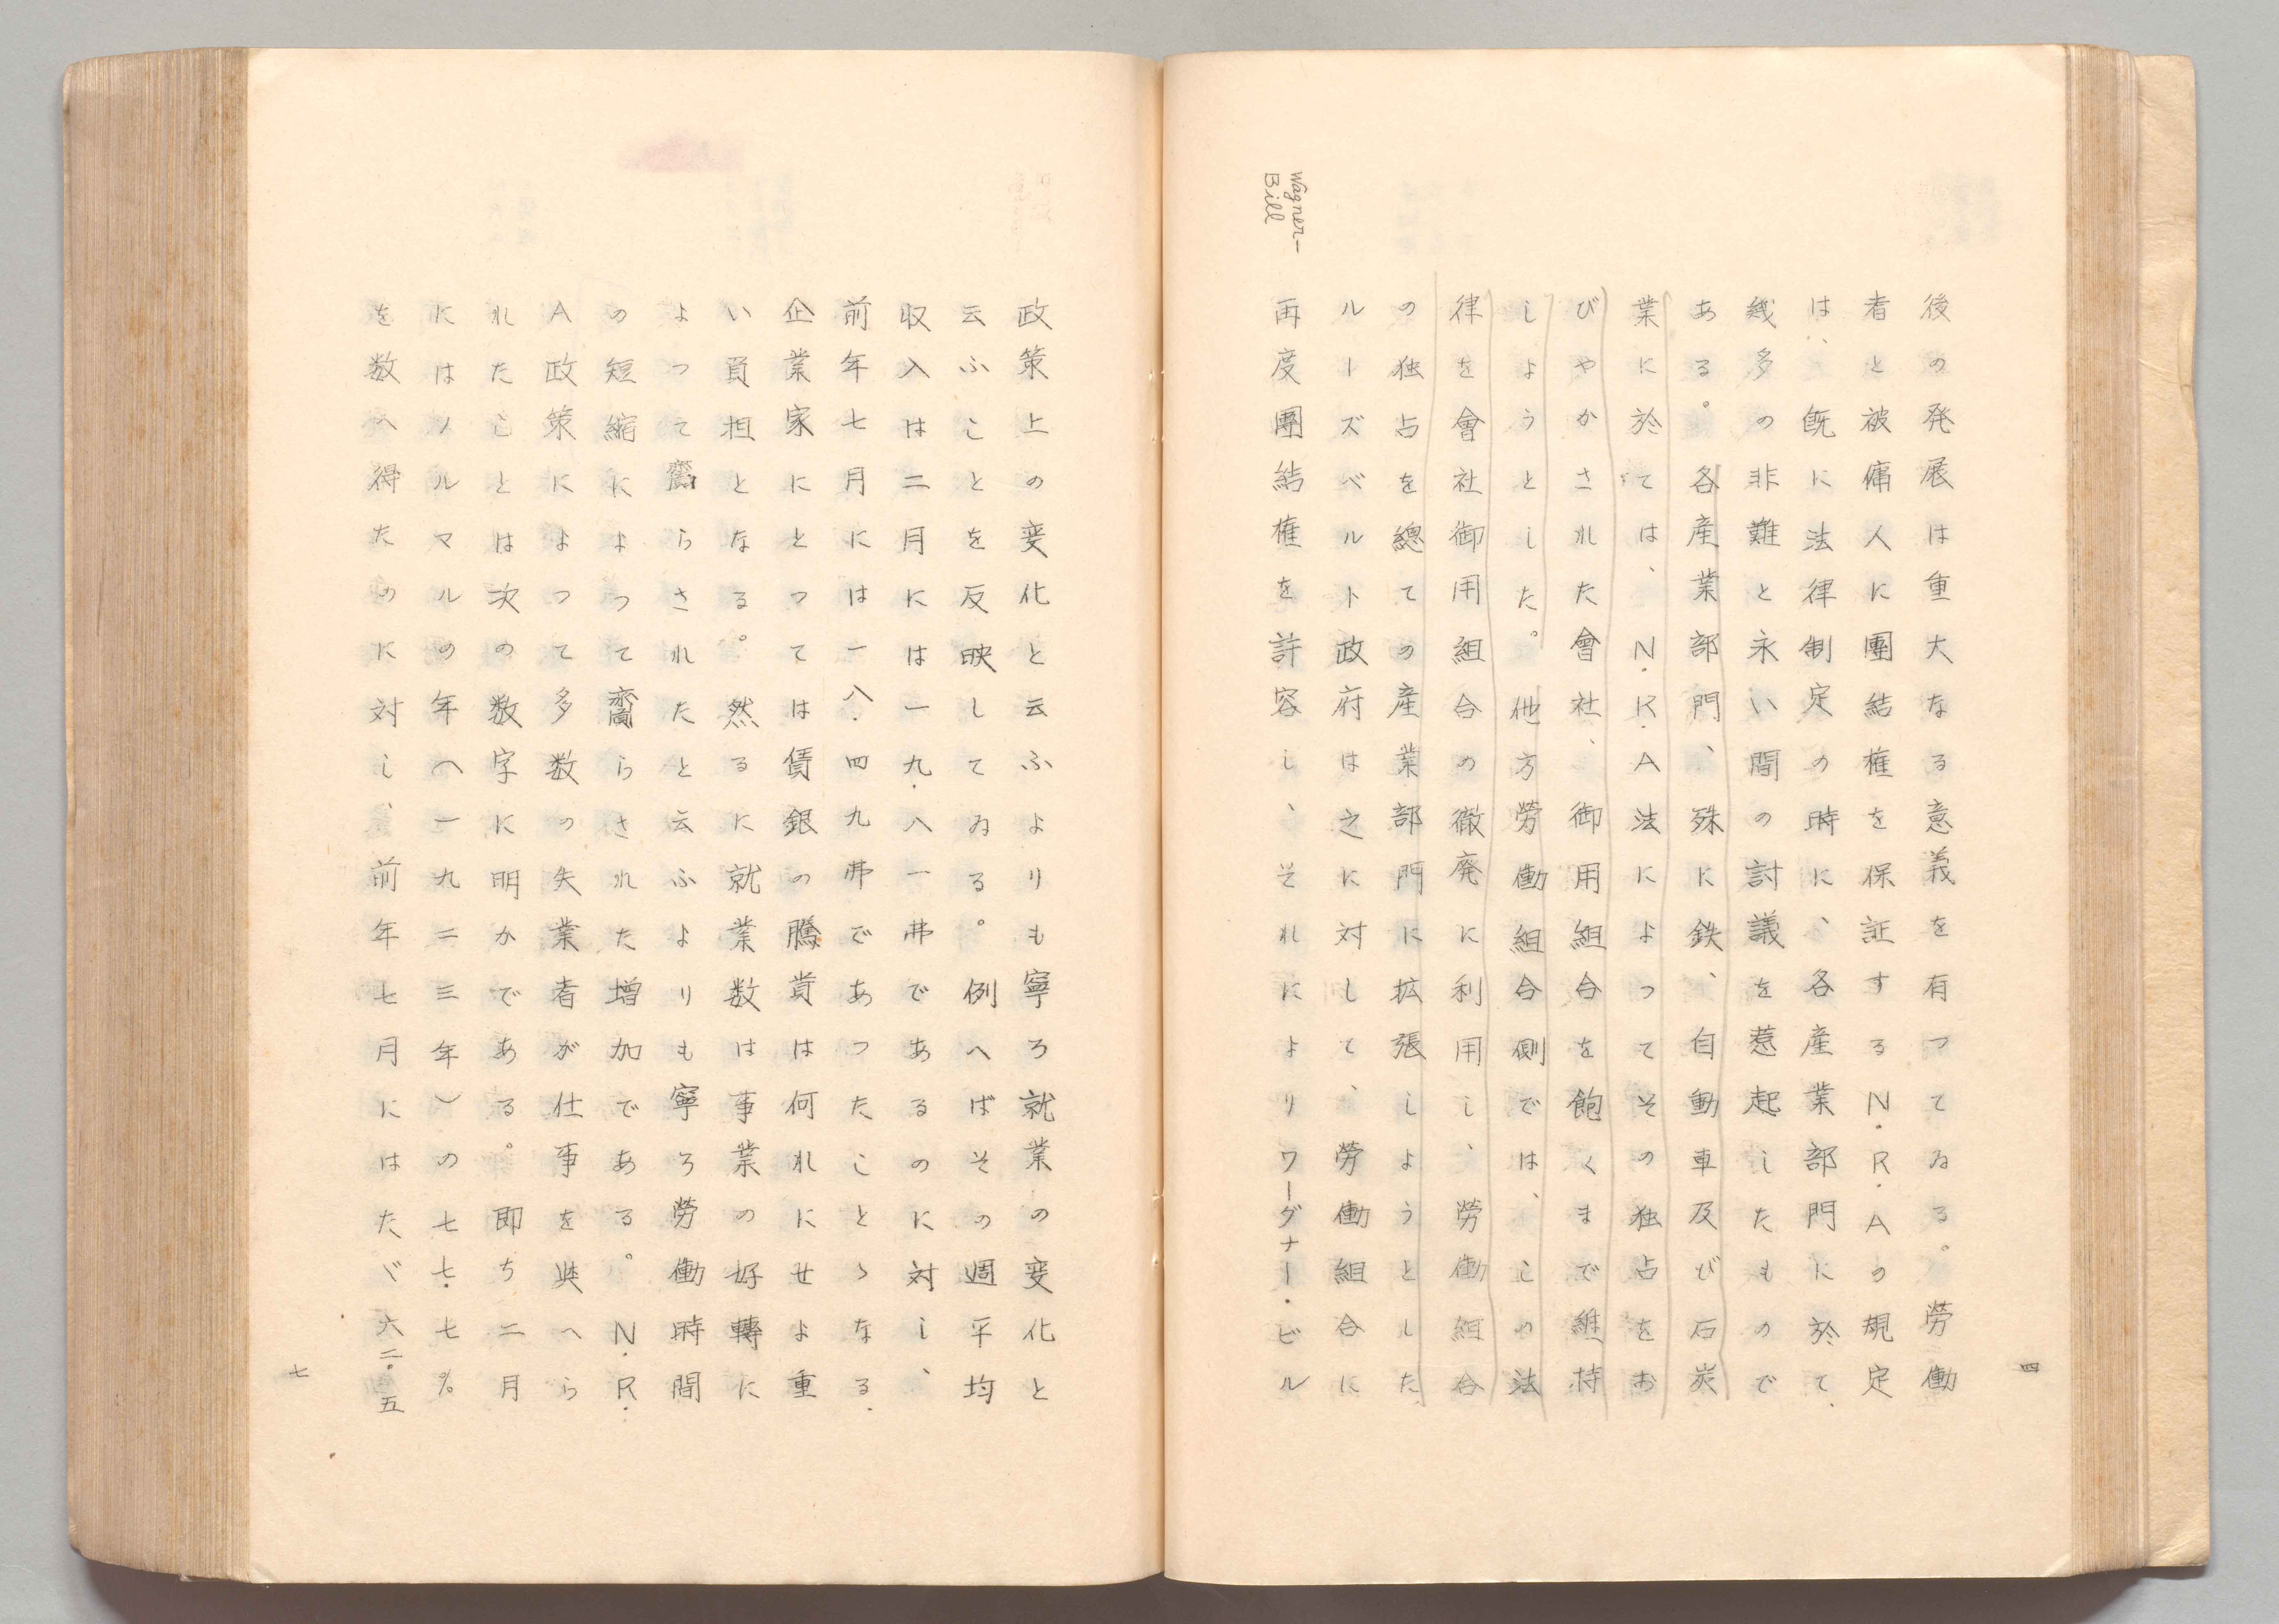 四
後の発展は重大なる意義を有つてゐる。勞働
者と被傭人に團結権を保証するN.R.Aの規定
は、既に法律制定の時に、各産業部門に於て、
幾多の非難と永い間の討議を惹起したもので
ある。各産業部門、殊に鉄、自動車及び石炭
業に於ては、N.R.A法によつてその独占をお
びやかされた會社、御用組合を飽くまで維持
しようとした。他方勞働組合側では、この法
律を會社御用組合の徹廃に利用し、勞働組合
の独占を總ての産業部門に拡張しようとした
ルーズベルト政府は之に対して、勞働組合に
再度團結権を許容し、それによりワーグナー・ビル
Wagner-
Bill
政策上の変化と云ふよりも寧ろ就業の変化と
云ふことを反映してゐる。例へばその週平均
収入は二月には一九.八一弗であるのに対し、
前年七月には一八.四九弗であつたことゝなる.
企業家にとつては賃銀の騰貴は何れにせよ重
い負担となる。然るに就業数は事業の好轉に
よつて齎らされたと云ふよりも寧ろ勞働時間
の短縮によつて齎らされた増加である。N.R.
A政策によつて多数の失業者が仕事を與へら
れたことは次の数字に明かである。即ち二月
にはノルマルの年(一九二三年)の七七.七%
を数へ得たのに対し、前年七月にはたゞ六二.五
七